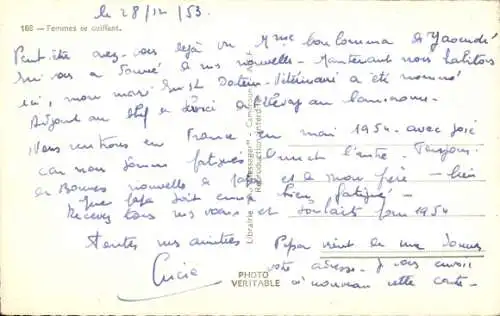 le 28/12/53.
188 — Femmes se coiffant.
Peut être avez-vous déjà vu Mme bonhomme de Yaoundé
qui vous a donné de nos nouvelles - Maintenant nous habitons
ici, mon mari qui est Docteur-Vétérinaire a été nommé
Adjoint au chef de service de l'élevage au Cameroun.
Nous rentrons en France en mai 1954 avec joie
car nous sommes fatigués l'un et l'autre. Toujours
de bonnes nouvelles de papa et de mon frère - bien
que papa soit encore bien fatigué -
Recevez tous nos vœux et souhaits pour 1954
et toutes nos amitiés Papa vient de me donner
Lucie votre adresse. Je vous envoie
à nouveau cette carte -
Librairie "Au Messager" - Cameroun
Reproduction interdite
PHOTO
VÉRITABLE